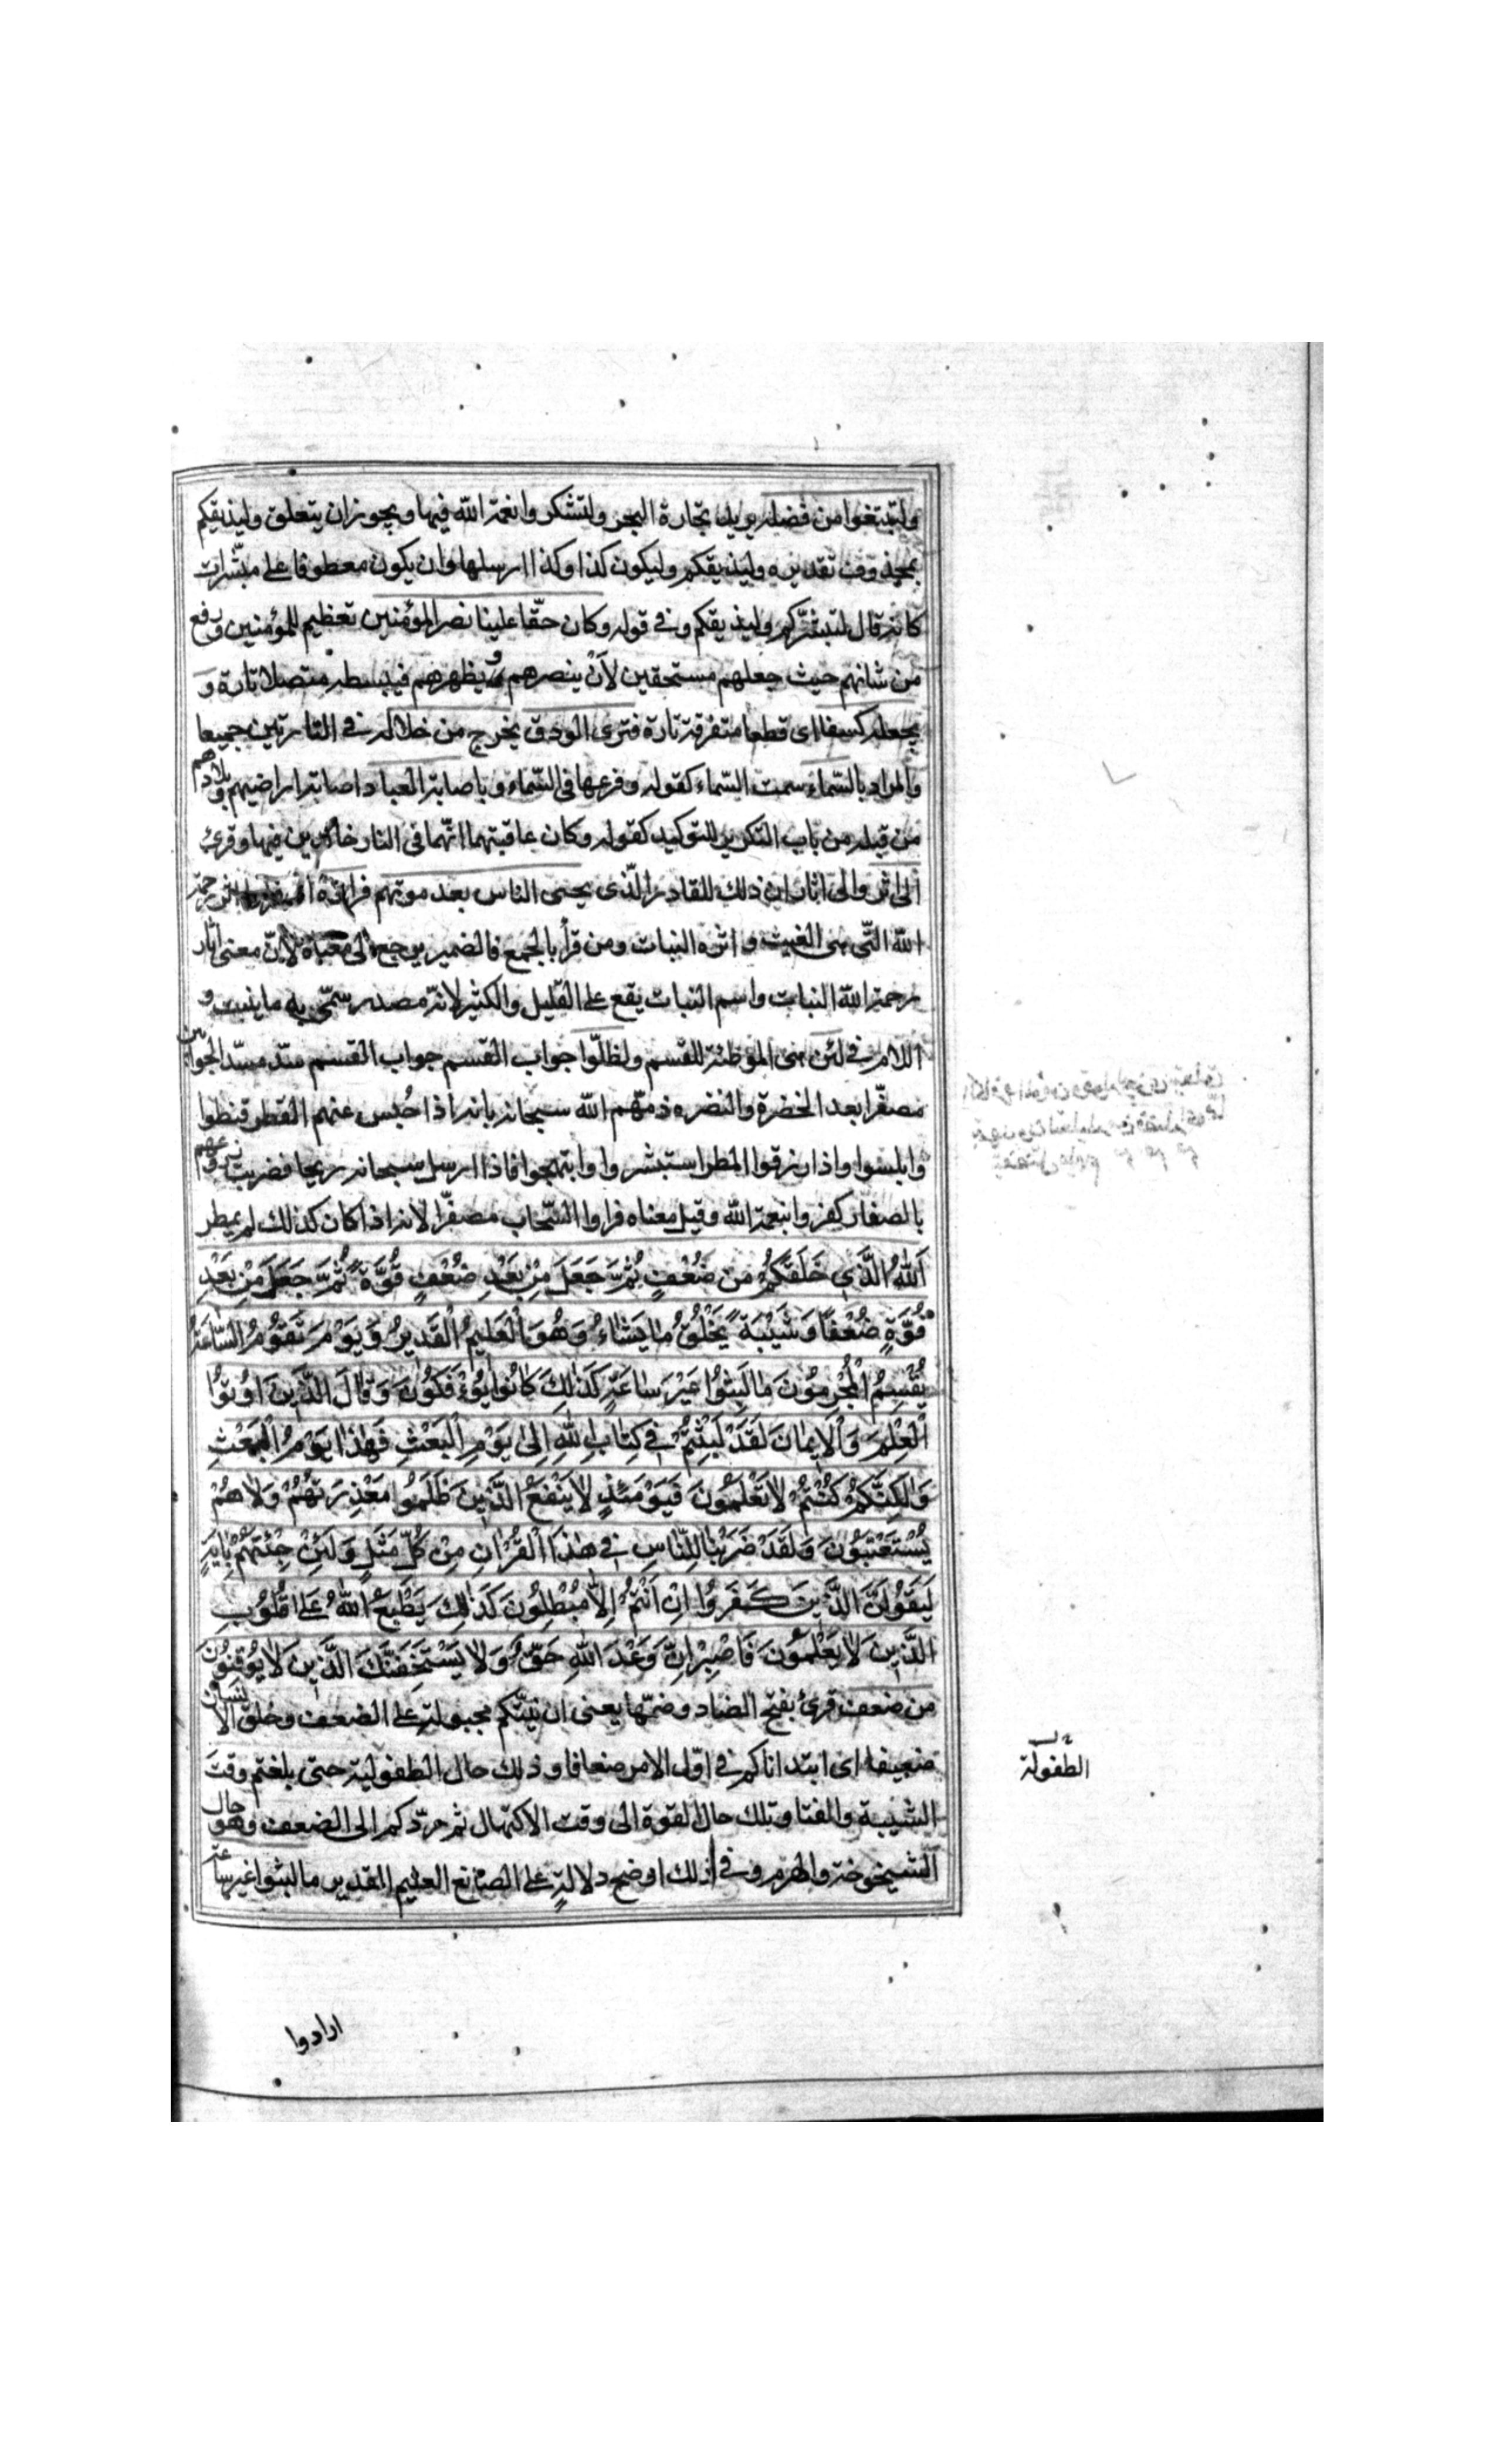 ولتبتغوا من فضله يريد تجارة البحر ولتشكروا نعمة الله فيها ويجوز ان يتعلق وليذيقكم
بمحذوف تقديره وليذيقكم وليكون كذا وكذا ارسلها وان يكون معطوفا على مبشّرات
كانه قال لتبشّركم وليذيقكم وفي قوله وكان حقّا علينا نصر المؤمنين تعظيم للمؤمنين ورفع
من شانهم حيث جعلهم مستحقين لأن ينصرهم ويظهرهم فيبسطه متصلا تارة و
يجعله كسفا اى قطعا متفرقة تارة فترى الودق يخرج من خلاله في التارتين جميعا
والمراد بالسّماء سمت السّماء كقوله وفرعها فى السّماء وباصابة العباد اصابة اراضيهم وبلادهم
من قبله من باب التكرير للتوكيد كقوله وكان عاقبتهما انّهما فى النار خالدين فيها وقرئ
الى اثر والى اثار ان ذلك للقادر الّذى يحيى الناس بعد موتهم فراوه اثر رحمة
الله الّتى هى الغيث و اثره النبات ومن قرأ بالجمع فالضمير يرجع الى معناه لأنّ معنى اثار
رحمة الله النبات واسم النبات يقع على القليل والكثير لانّه مصدر سمّى به ما ينبت و
اللام في لئن هى الموطئة للقسم ولظلّوا جواب القسم جواب القسم سدّ مسدّ الجوابين
مصفّرا بعد الخضرة والنضره ذمّهم الله سبحانه بانه اذا حُبس عنهم القطر قنطوا
وابلسوا واذا رزقوا المطر استبشروا وابتهجوا فاذا ارسل سبحانه ريحا فضربت زروعهم
بالصفار كفروا بنعمة الله وقيل معناه فراوا السّحاب مصفّرا لانه اذا كان كذلك لم يمطر
اَللهُ الَّذَي خَلَقَكُمْ مِن ضُعْفٍ ثُمَّ جَعَلَ مِنْ بَعْدِ ضُعْفٍ قُوَّةً ثُمَّ جَعَلَ مِنْ بَعْدِ
قُوَّةٍ ضُعْفًا وَشَيْبَةً يَخْلُقُ مَا يَشَاءُ وَهُوَ الْعَلِيمُ الْقَدِيرُ وَيَوْمَ تَقُومُ السَّاعَةُ
يُقْسِمُ الْمُجْرِمُونَ مَا لَبِثُوا غَيْرَ سَاعَةٍ كَذَلِكَ كَانُوا يُؤْفَكُونَ وَقَالَ الَّذَينَ اُوتُوا
الْعِلْمَ وَالْاِيمَانَ لَقَدْ لَبِثْتُمْ فِي كِتَابِ اللهِ اِلَى يَوْمِ الْبَعْثِ فَهَذَا يَوْمُ الْبَعْثِ
وَلَكِنَّكُمْ كُنْتُمْ لاَ تَعْلَمُونَ فَيَوْمَئِذٍ لاَ يَنْفَعُ الَّذِينَ ظَلَمُوا مَعْذِرَتُهُمْ وَلاَ هُمْ
يُسْتَعْتَبُونَ وَلَقَدْ ضَرَبْنَا لِلنَّاسِ فِي هَذَا الْقُرْانِ مِنْ كُلِّ مَثَلٍ وَلَئِنْ جِئْتَهُمْ بِايَةٍ
لَيَقُولَنَّ الَّذِينَ كَفَرُوا اِنْ اَنْتُمْ اِلاَّ مُبْطِلُونَ كَذَلِكَ يَطْبَعُ اللهُ عَلَى قُلُوبِ
الَّذِينَ لاَ يَعْلَمُونَ فَاصْبِرْ اِنَّ وَعْدَ اللهِ حَقٌّ وَلاَ يَسْتَخِفَّنَّكَ الَّذِينَ لاَ يُوقِنُونَ
من ضعف قرئ بفتح الضاد وضمّها يعنى ان بنيتكم مجبولة على الضعف وخلق الانسان
ضعيفا اى ابتداناكم في اوّل الامر ضعافا وذلك حال الطفولية حتى بلغتم وقت
الشبيبة والفتا وتلك حال القوة الى وقت الاكتهال ثم ردّكم الى الضعف وهو حال
الشيخوخة والهرم وفي ذلك اوضح دلالةٍ على الصّانع العليم القدير ما لبثوا غير ساعة
الطفولة
ارادوا